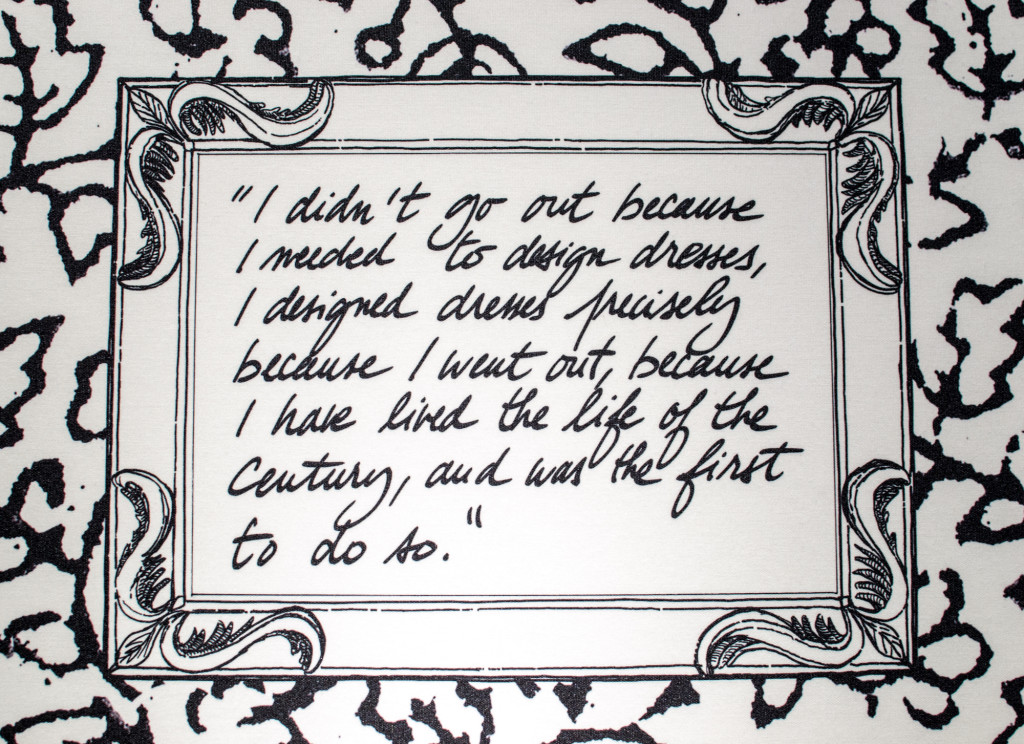 "I didn't go out because
I needed to design dresses,
I designed dresses precisely
because I went out, because
I have lived the life of the
Century, and was the first
to do so."